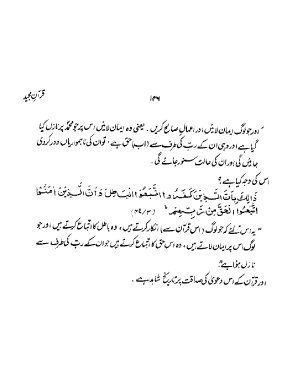 ۱۳۶ قرآن مجید
"اور جو لوگ ایمان لائیں اور اعمالِ صالح کریں۔ یعنی وہ ایمان لائیں اس پر جو محمدؐ پر نازل کیا
گیا ہے اور وہی ان کے ربّ کی طرف سے (اب) حق ہے" تو ان کی ناہمواریاں دور کر دی
جائیں گی اور ان کی حالت سنور جائے گی۔
اس کی وجہ کیا ہے؟
ذٰلِكَ بِاَنَّ الَّذِيْنَ كَفَرُوا اتَّبَعُوا الْبَاطِلَ وَ اَنَّ الَّذِيْنَ اٰمَنُوا
اتَّبَعُوا الْحَقَّ مِنْ رَّبِّهِمْ (۴۷/۳)
"یہ اس لئے کہ جو لوگ (اس قرآن سے) انکار کرتے ہیں، وہ باطل کا اتباع کرتے ہیں اور جو
لوگ اس پر ایمان لاتے ہیں، وہ اس حق کا اتباع کرتے ہیں جو ان کے ربّ کی طرف سے
نازل ہوا ہے"۔
اور قرآن کے اس دعویٰ کی صداقت پر تاریخ شاہد ہے۔